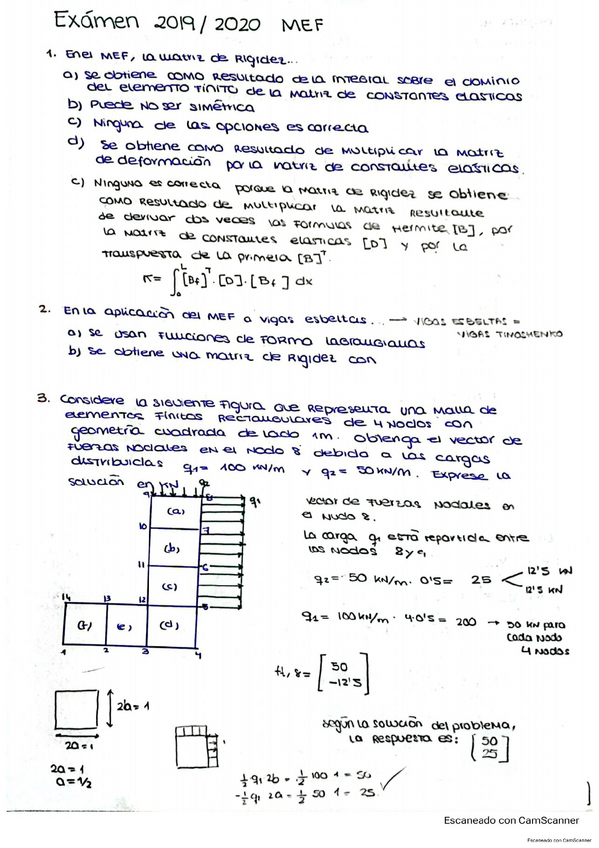 Exámen 2019/2020 MEF
1. En el MEF, la matriz de Rigidez...
a) Se obtiene como Resultado de la integral sobre el dominio
del elemento finito de la matriz de constantes elasticas
b) Puede no ser simétrica
c) Ninguna de las opciones es correcta
d) Se obtiene como Resultado de multiplicar la matriz
de deformación por la matriz de constantes elásticas.
c) Ninguna es correcta porque la matriz de Rigidez se obtiene
como Resultado de multiplicar la matriz Resultante
de derivar dos veces las formulas de Hermite [B], por
la matriz de constantes elasticas [D] y por la
transpuesta de la primera [B]ᵀ.
K = ∫₀ᴸ [Bf]ᵀ · [D] · [Bf] dx
2. En la aplicación del MEF a vigas esbeltas... → VIGAS ESBELTAS =
VIGAS TIMOSHENKO
a) Se usan funciones de forma lagrangianas
b) Se obtiene una matriz de Rigidez con
3. Considere la siguiente figura que representa una malla de
elementos finitos rectangulares de 4 nodos con
geometría cuadrada de lado 1m. Obtenga el vector de
fuerzas nodales en el nodo 8 debido a las cargas
distribuidas q1 = 100 kN/m y q2 = 50 kN/m. Exprese la
solución en kN
q2
9
8
q1
(a)
10
7
(b)
11
6
(c)
14
13
12
5
(f)
(e)
(d)
1
2
3
4
vector de fuerzas nodales en
el nudo 8.
La carga q1 está repartida entre
los nodos 8 y 9
q2 = 50 kN/m · 0'5 = 25
12'5 kN
12'5 kN
q1 = 100 kN/m · 4·0'5 = 200 → 50 kN para
cada nodo
4 nodos
50
-12'5
2b = 1
2a = 1
2a = 1
a = 1/2
según la solución del problema,
la respuesta es: [50
25]
½ q1 2b = ½ 100 1 = 50
-½ q1 2a = ½ 50 1 = 25
Escaneado con CamScanner
Escaneado con CamScanner